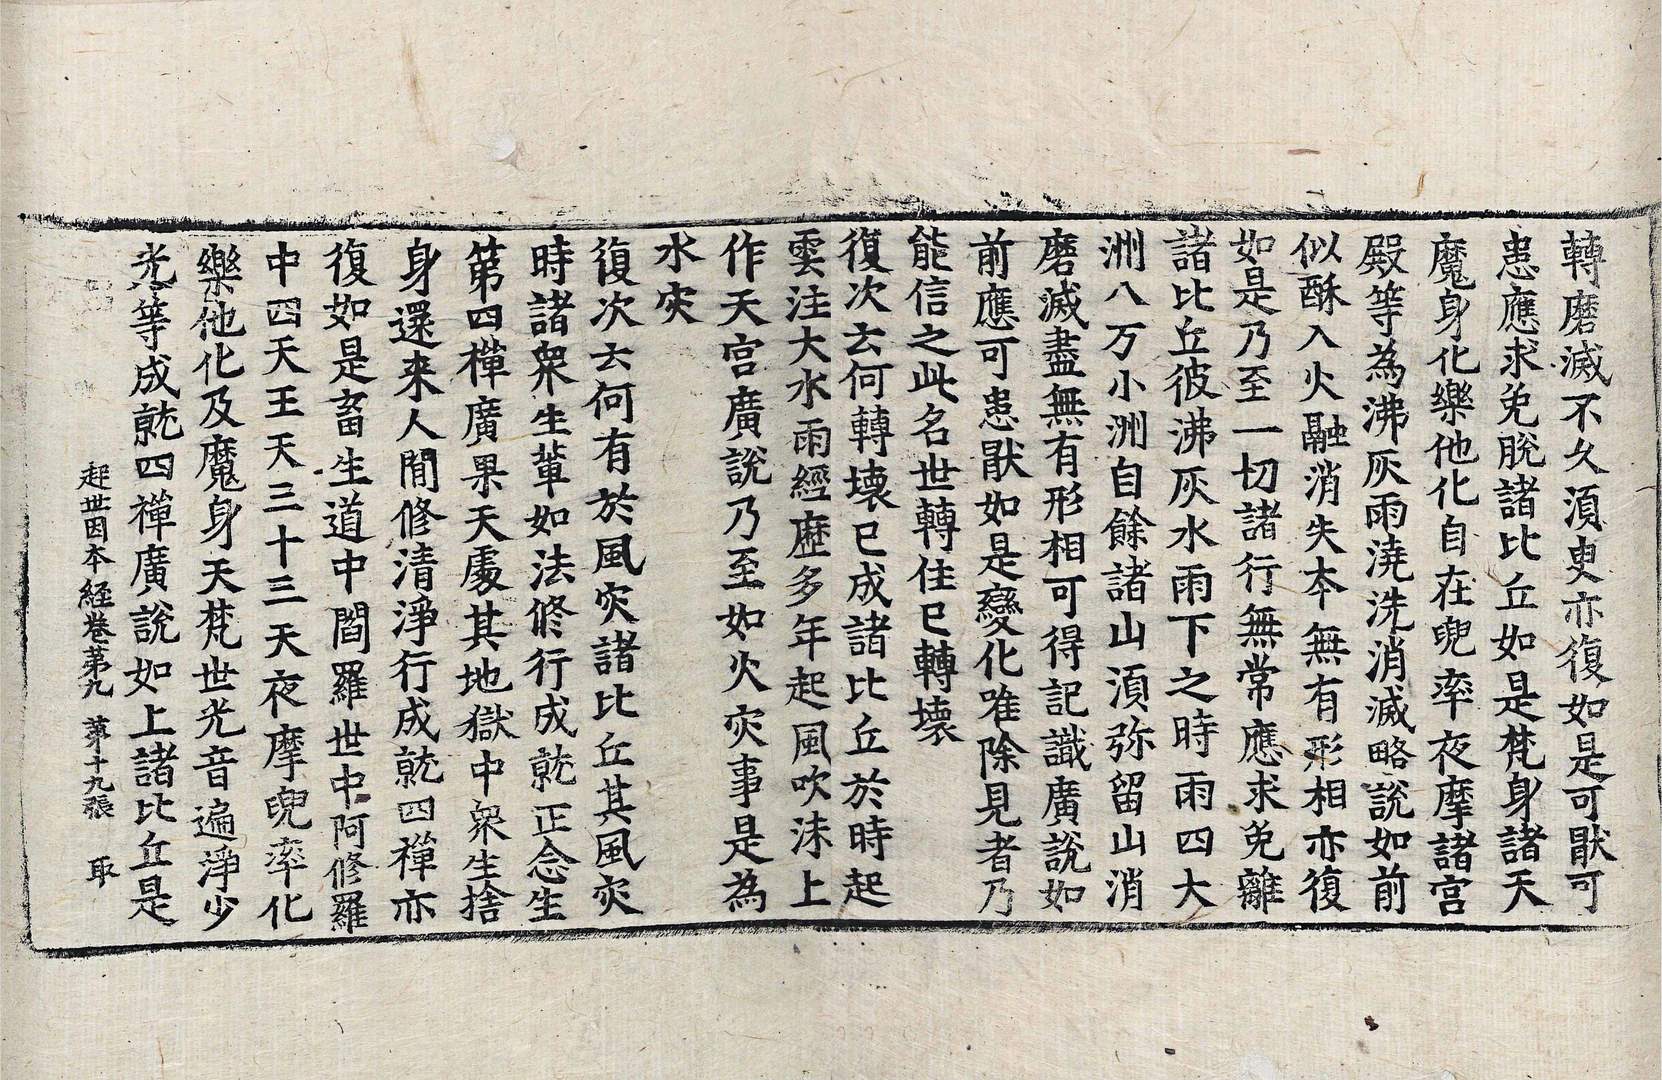 轉磨滅不久須臾亦復如是可猒可
患應求免脫諸比丘如是梵身諸天
魔身化樂他化自在兜率夜摩諸宮
殿等為沸灰雨澆洗消滅略說如前
似酥入火融消失本無有形相亦復
如是乃至一切諸行無常應求免離
諸比丘彼沸灰水雨下之時雨四大
洲八万小洲自餘諸山須弥留山消
磨滅盡無有形相可得記識廣說如
前應可患猒如是變化唯除見者乃
能信之此名世轉住已轉壞
復次云何轉壞已成諸比丘於時起
雲注大水雨經歷多年起風吹沫上
作天宮廣說乃至如火灾事是為
水灾
復次云何有於風灾諸比丘其風灾
時諸衆生軰如法修行成就正念生
第四禪廣果天處其地獄中衆生捨
身還来人閒修清淨行成就四禪亦
復如是畜生道中閻羅世中阿修羅
中四天王天三十三天夜摩兜率化
樂他化及魔身天梵世光音遍淨少
光等成就四禪廣說如上諸比丘是
起世因本經卷第九 第十九張 取